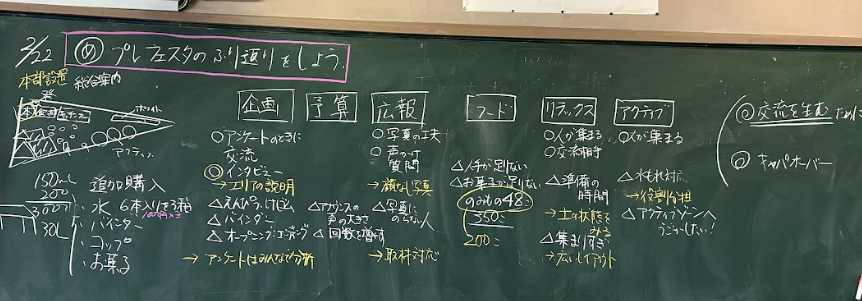 2/22
め プレフェスタのふり返りをしよう。
本部設置 総合案内
ホワイト
アクティブ
150ml
200
300
30L
追加購入
・水 6本入りを3箱
・バインダー
・コップ
・お菓子
企画
○アンケートのときに
交流
◎インタビュー
→エリアの説明
△えんぴつ、けしゴム
△バインダー
△オープニング・エンディング
→アンケートはみんなで分析
予算
△アナウンスの
声の大きさ
回数を増す
広報
○写真の工夫
○声かけ
質問
→顔なし写真
△写真に
のらない人
→取材対応
フード
△人手が足りない
△お菓子が足りない
のみもの48こ
350こ
200こ
リラックス
○人が集まる
○交流相対
△準備の
時間
→土の状態を
みる
△集まりすぎ
→広いレイアウト
アクティブ
○人が集まる
△水もれ対応
→役割分担
△アクティブゾーンへ
うごかしたい!
◎交流を生むために
◎キャパオーバー